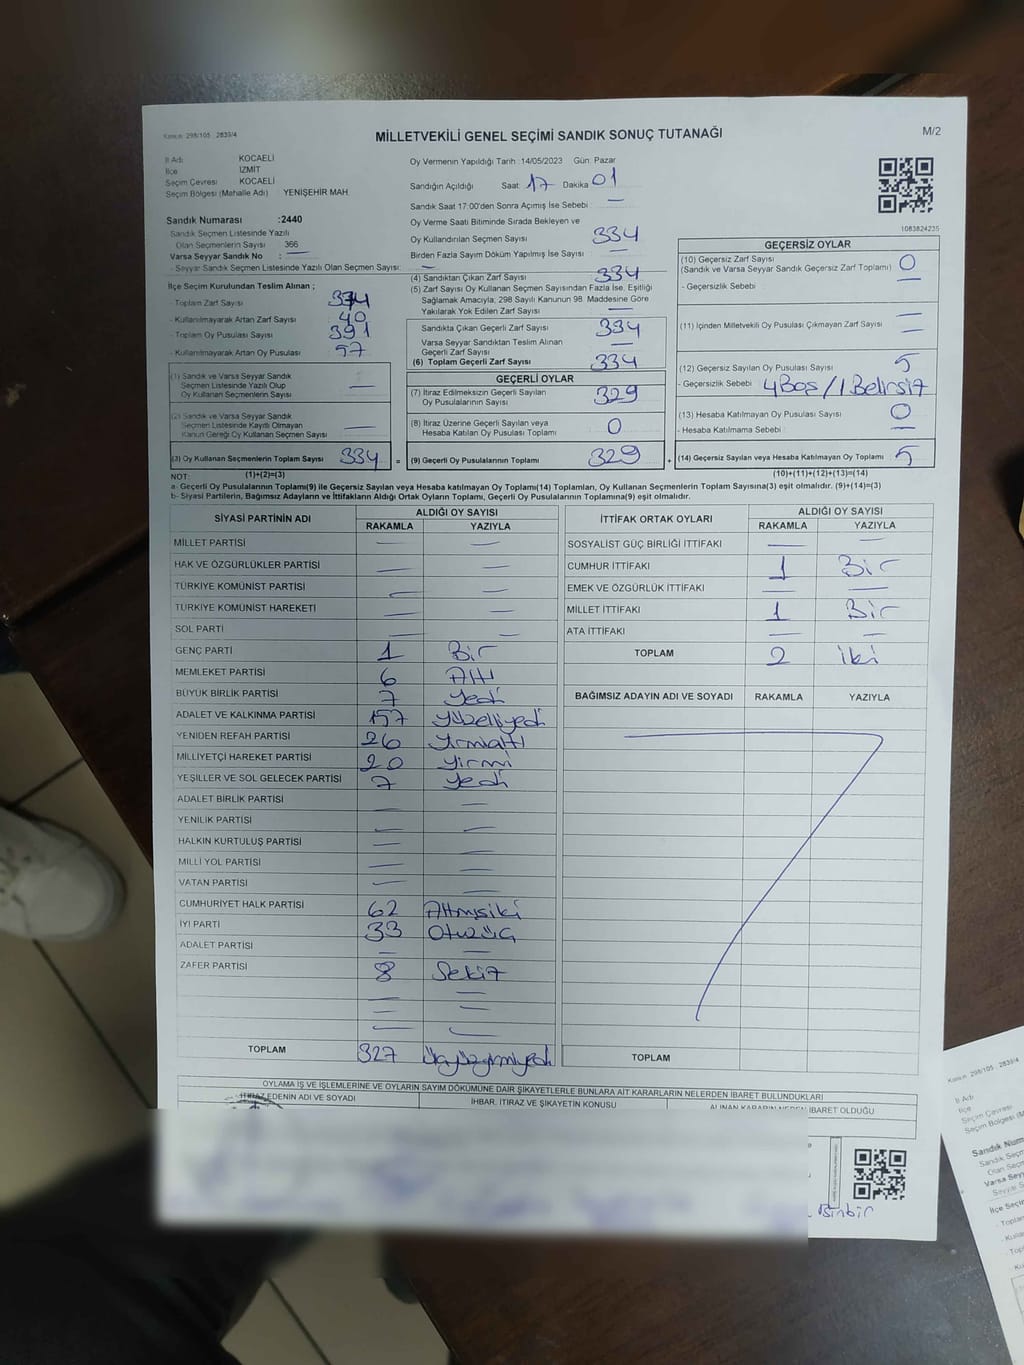 Kanun: 298/105 : 2839/4
MİLLETVEKİLİ GENEL SEÇİMİ SANDIK SONUÇ TUTANAĞI
M/2
İl Adı KOCAELİ
İlçe İZMİT
Seçim Çevresi KOCAELİ
Seçim Bölgesi (Mahalle Adı) YENİŞEHİR MAH
Sandık Numarası :2440
Sandık Seçmen Listesinde Yazılı
Olan Seçmenlerin Sayısı 366
Varsa Seyyar Sandık No : —
- Seyyar Sandık Seçmen Listesinde Yazılı Olan Seçmen Sayısı: —
İlçe Seçim Kurulundan Teslim Alınan ;
- Toplam Zarf Sayısı 374
- Kullanılmayarak Artan Zarf Sayısı 40
- Toplam Oy Pusulası Sayısı 391
- Kullanılmayarak Artan Oy Pusulası 57
(1) Sandık ve Varsa Seyyar Sandık
Seçmen Listesinde Yazılı Olup
Oy Kullanan Seçmenlerin Sayısı —
(2) Sandık ve Varsa Seyyar Sandık
Seçmen Listesinde Kayıtlı Olmayan
Kanun Gereği Oy Kullanan Seçmen Sayısı —
(3) Oy Kullanan Seçmenlerin Toplam Sayısı 334 =
(1)+(2)=(3)
Oy Vermenin Yapıldığı Tarih :14/05/2023 Gün: Pazar
Sandığın Açıldığı Saat: 17 Dakika 01
Sandık Saat 17:00'den Sonra Açımış İse Sebebi : —
Oy Verme Saati Bitiminde Sırada Bekleyen ve
Oy Kullandırılan Seçmen Sayısı 334
Birden Fazla Sayım Döküm Yapılmış İse Sayısı —
(4) Sandıktan Çıkan Zarf Sayısı 334
(5) Zarf Sayısı Oy Kullanan Seçmen Sayısından Fazla İse, Eşitliği
Sağlamak Amacıyla; 298 Sayılı Kanunun 98. Maddesine Göre
Yakılarak Yok Edilen Zarf Sayısı —
Sandıkta Çıkan Geçerli Zarf Sayısı 334
Varsa Seyyar Sandıktan Teslim Alınan
Geçerli Zarf Sayısı —
(6) Toplam Geçerli Zarf Sayısı 334
GEÇERLİ OYLAR
(7) İtiraz Edilmeksizin Geçerli Sayılan
Oy Pusulalarının Sayısı 329
(8) İtiraz Üzerine Geçerli Sayılan veya
Hesaba Katılan Oy Pusulası Toplamı 0
(9) Geçerli Oy Pusulalarının Toplamı 329 +
1083824235
GEÇERSİZ OYLAR
(10) Geçersiz Zarf Sayısı
(Sandık ve Varsa Seyyar Sandık Geçersiz Zarf Toplamı) 0
- Geçersizlik Sebebi —
(11) İçinden Milletvekili Oy Pusulası Çıkmayan Zarf Sayısı —
(12) Geçersiz Sayılan Oy Pusulası Sayısı 5
- Geçersizlik Sebebi 4 Boş / 1 Belirsiz
(13) Hesaba Katılmayan Oy Pusulası Sayısı 0
- Hesaba Katılmama Sebebi —
(14) Geçersiz Sayılan veya Hesaba Katılmayan Oy Toplamı 5
(10)+(11)+(12)+(13)=(14)
NOT:
a- Geçerli Oy Pusulalarının Toplamı(9) ile Geçersiz Sayılan veya Hesaba katılmayan Oy Toplamı(14) Toplamları, Oy Kullanan Seçmenlerin Toplam Sayısına(3) eşit olmalıdır. (9)+(14)=(3)
b- Siyasi Partilerin, Bağımsız Adayların ve İttifakların Aldığı Ortak Oyların Toplamı, Geçerli Oy Pusulalarının Toplamına(9) eşit olmalıdır.
SİYASİ PARTİNİN ADI ALDIĞI OY SAYISI
RAKAMLA YAZIYLA
MİLLET PARTİSİ — —
HAK VE ÖZGÜRLÜKLER PARTİSİ — —
TÜRKİYE KOMÜNİST PARTİSİ — —
TÜRKİYE KOMÜNİST HAREKETİ — —
SOL PARTİ — —
GENÇ PARTİ 1 Bir
MEMLEKET PARTİSİ 6 Altı
BÜYÜK BİRLİK PARTİSİ 7 Yedi
ADALET VE KALKINMA PARTİSİ 157 Yüzelliyedi
YENİDEN REFAH PARTİSİ 26 Yirmialtı
MİLLİYETÇİ HAREKET PARTİSİ 20 Yirmi
YEŞİLLER VE SOL GELECEK PARTİSİ 7 Yedi
ADALET BİRLİK PARTİSİ — —
YENİLİK PARTİSİ — —
HALKIN KURTULUŞ PARTİSİ — —
MİLLİ YOL PARTİSİ — —
VATAN PARTİSİ — —
CUMHURİYET HALK PARTİSİ 62 Altmışiki
İYİ PARTİ 33 Otuzüç
ADALET PARTİSİ — —
ZAFER PARTİSİ 8 Sekiz
— —
— —
TOPLAM 327 Üçyüzyirmiyedi
İTTİFAK ORTAK OYLARI ALDIĞI OY SAYISI
RAKAMLA YAZIYLA
SOSYALİST GÜÇ BİRLİĞİ İTTİFAKI — —
CUMHUR İTTİFAKI 1 Bir
EMEK VE ÖZGÜRLÜK İTTİFAKI — —
MİLLET İTTİFAKI 1 Bir
ATA İTTİFAKI — —
TOPLAM 2 iki
BAĞIMSIZ ADAYIN ADI VE SOYADI RAKAMLA YAZIYLA
TOPLAM
OYLAMA İŞ VE İŞLEMLERİNE VE OYLARIN SAYIM DÖKÜMÜNE DAİR ŞİKAYETLERLE BUNLARA AİT KARARLARIN NELERDEN İBARET BULUNDUKLARI
İTİRAZ EDENİN ADI VE SOYADI İHBAR, İTİRAZ VE ŞİKAYETİN KONUSU ALINAN KARARIN NEDEN İBARET OLDUĞU
Binbir
Kanun: 298/105 : 2839/4
İl Adı
İlçe
Seçim Çevresi
Seçim Bölgesi (M
Sandık Num
Sandık Seçm
Olan Seçm
Varsa Sey
Seyyar S
İlçe Seçim
- Toplam
- Kulla
- Top